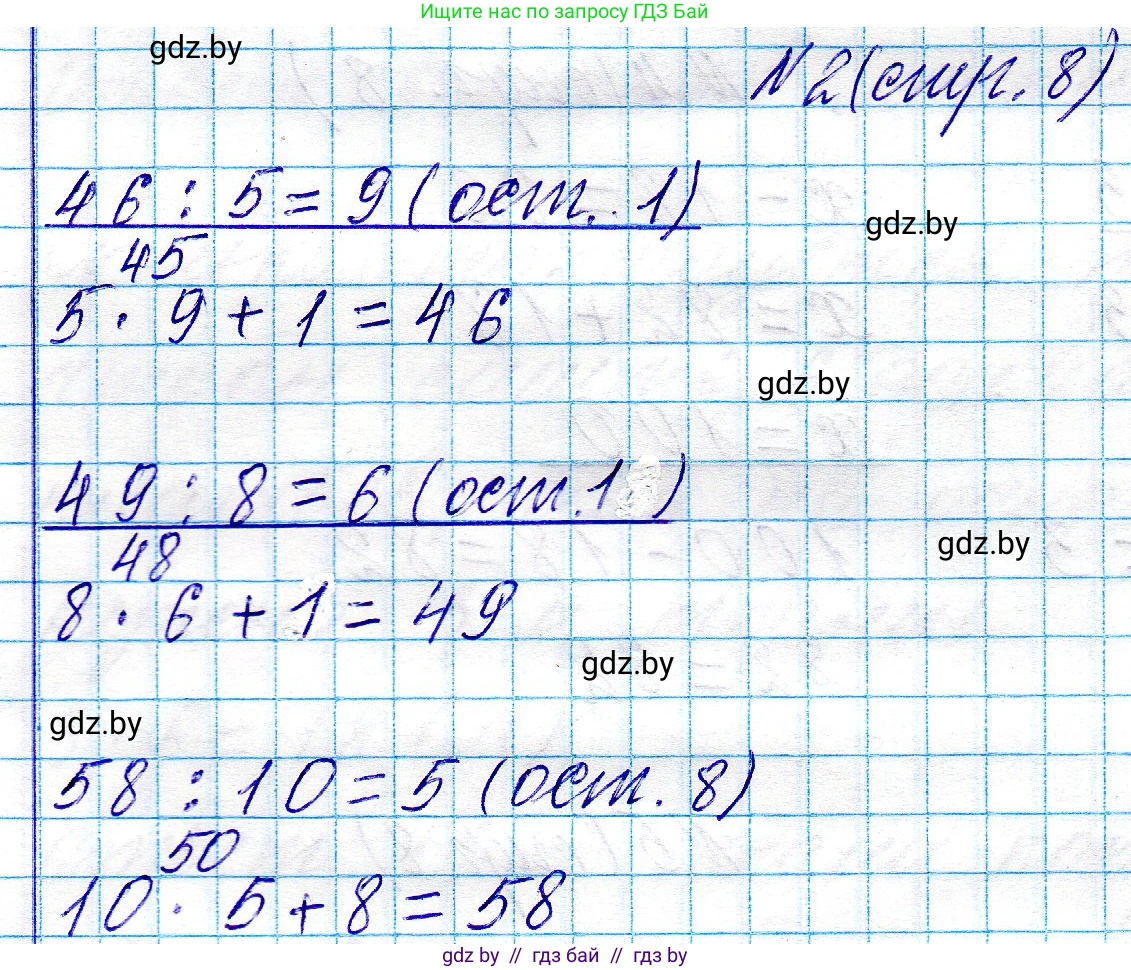 Ищите нас по запросу ГДЗ Бай
gdz.by
№2 (стр. 8)
46 : 5 = 9 (ост. 1)
gdz.by
45
5 · 9 + 1 = 46
gdz.by
49 : 8 = 6 (ост. 1)
gdz.by
48
8 · 6 + 1 = 49
gdz.by
gdz.by
58 : 10 = 5 (ост. 8)
50
10 · 5 + 8 = 58
gdz.by // гдз бай // gdz.by